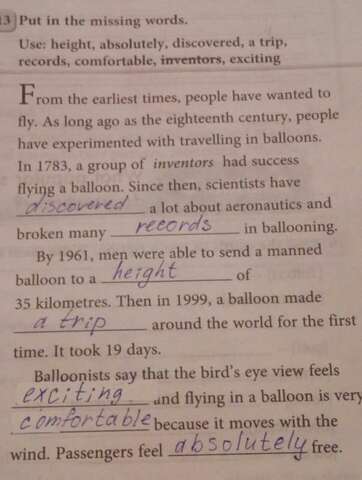 13 Put in the missing words.
Use: height, absolutely, discovered, a trip,
records, comfortable, inventors, exciting
From the earliest times, people have wanted to
fly. As long ago as the eighteenth century, people
have experimented with travelling in balloons.
In 1783, a group of inventors had success
flying a balloon. Since then, scientists have
discovered a lot about aeronautics and
broken many records in ballooning.
By 1961, men were able to send a manned
balloon to a height of
35 kilometres. Then in 1999, a balloon made
a trip around the world for the first
time. It took 19 days.
Balloonists say that the bird's eye view feels
exciting and flying in a balloon is very
comfortable because it moves with the
wind. Passengers feel absolutely free.